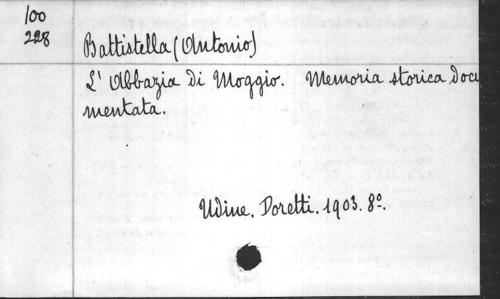 100
228
Battistella (Antonio)
L' Abbazia di Moggio. Memoria storica docu
mentata.
Udine. Doretti. 1903. 8º.